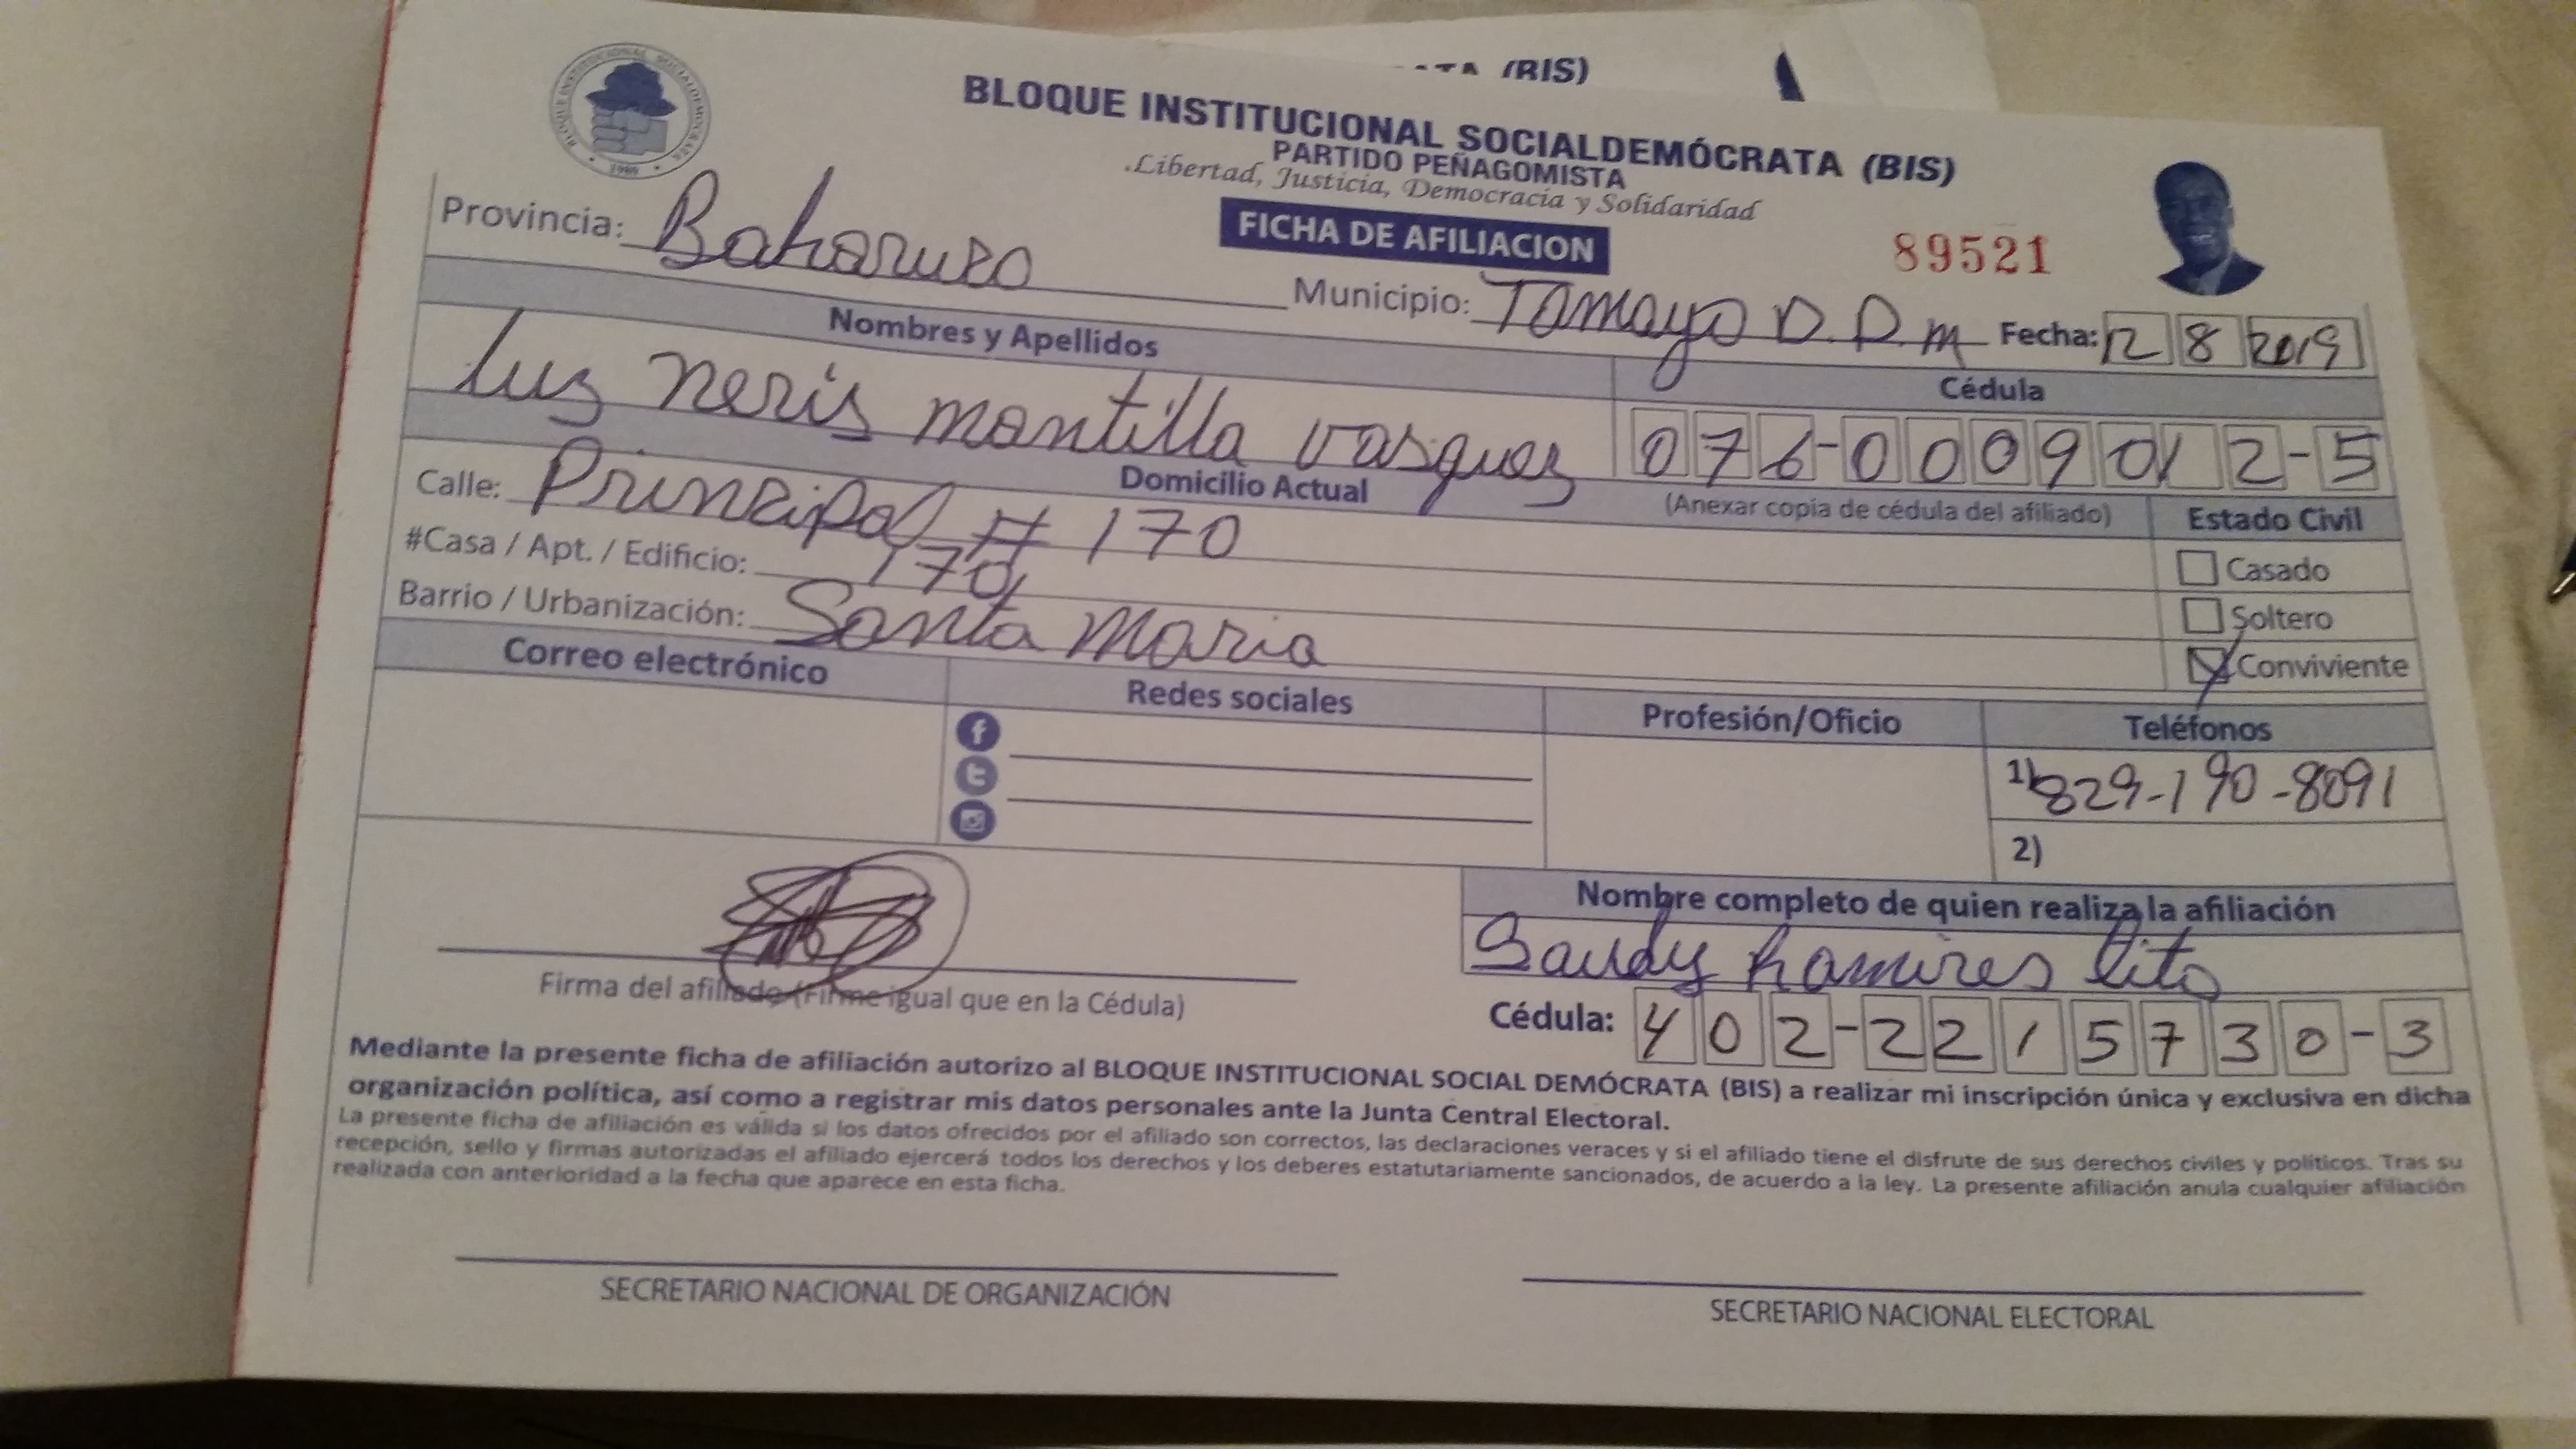 BLOQUE INSTITUCIONAL SOCIALDEMOCRATA
1989
(BIS)
BLOQUE INSTITUCIONAL SOCIALDEMÓCRATA (BIS)
PARTIDO PEÑAGOMISTA
.Libertad, Justicia, Democracia y Solidaridad
FICHA DE AFILIACION
89521
Provincia: Bahoruzo Municipio: Tamayo D. D. M Fecha: 12 8 2019
Nombres y Apellidos Cédula
luz neris montilla vasquez 076-0009012-5
Domicilio Actual (Anexar copia de cédula del afiliado) Estado Civil
Calle: Principal # 170
#Casa / Apt. / Edificio: 170 Casado
Barrio / Urbanización: Santa Maria Soltero
Conviviente
Correo electrónico Redes sociales Profesión/Oficio Teléfonos
1) 829-190-8091
2)
Nombre completo de quien realiza la afiliación
Sandy Ramires
Firma del afiliado (Firme igual que en la Cédula) Cédula: 402-2215730-3
Mediante la presente ficha de afiliación autorizo al BLOQUE INSTITUCIONAL SOCIAL DEMÓCRATA (BIS) a realizar mi inscripción única y exclusiva en dicha
organización política, así como a registrar mis datos personales ante la Junta Central Electoral.
La presente ficha de afiliación es válida si los datos ofrecidos por el afiliado son correctos, las declaraciones veraces y si el afiliado tiene el disfrute de sus derechos civiles y políticos. Tras su
recepción, sello y firmas autorizadas el afiliado ejercerá todos los derechos y los deberes estatutariamente sancionados, de acuerdo a la ley. La presente afiliación anula cualquier afiliación
realizada con anterioridad a la fecha que aparece en esta ficha.
SECRETARIO NACIONAL DE ORGANIZACIÓN SECRETARIO NACIONAL ELECTORAL